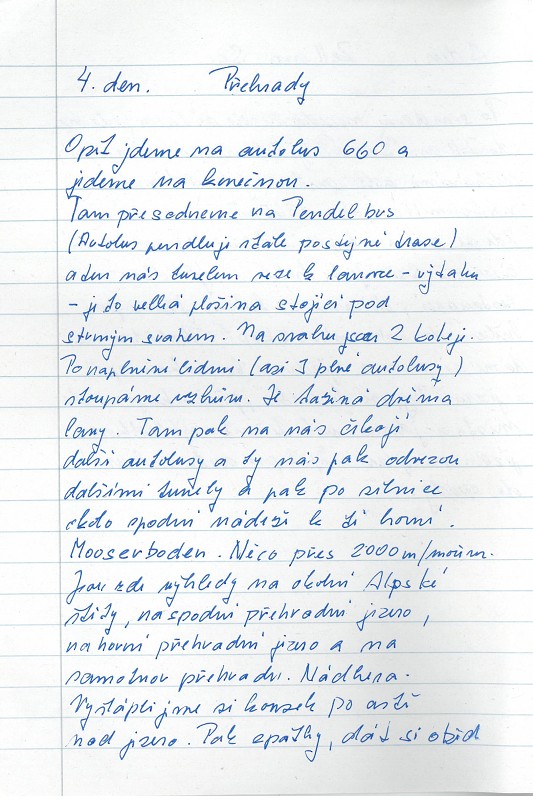 4. den. Přehrady
Opět jdeme na autobus 660 a
jideme na konečnou.
Tam přesedneme na Pendelbus
(Autobus pendluje stále po stejné trase)
a ten nás tunelem veze k lanovce - výtahu
- je to velká plošina stojící pod
strmým svahem. Na svahu jsou 2 koleje.
Po naplnění lidmi (asi 3 plné autobusy)
stoupáme vzhůru. Je tažená dvěma
lany. Tam pak na nás čekají
další autobusy a ty nás pak odvezou
dalšími tunely a pak po silnici
okolo spodní nádrži k té horní.
Mooserboden. Něco přes 2000 m/mořem.
Jsou zde výhledy na okolní Alpské
štíty, na spodní přehradní jezero,
na horní přehradní jezero a na
samotnou přehradu. Nádhera.
Vyšlápli jsme si kousek po
nad jezero. Pak zpátky, dát si oběd